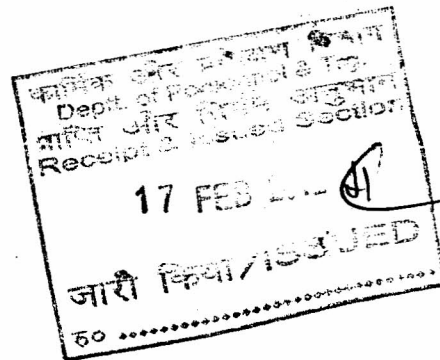 कार्मिक और प्रशिक्षण विभाग
Deptt. of Personnel & Trg.
प्राप्ति और निर्गम अनुभाग
Receipt & Issued Section
17 FEB
जारी किया/ISSUED
ह०